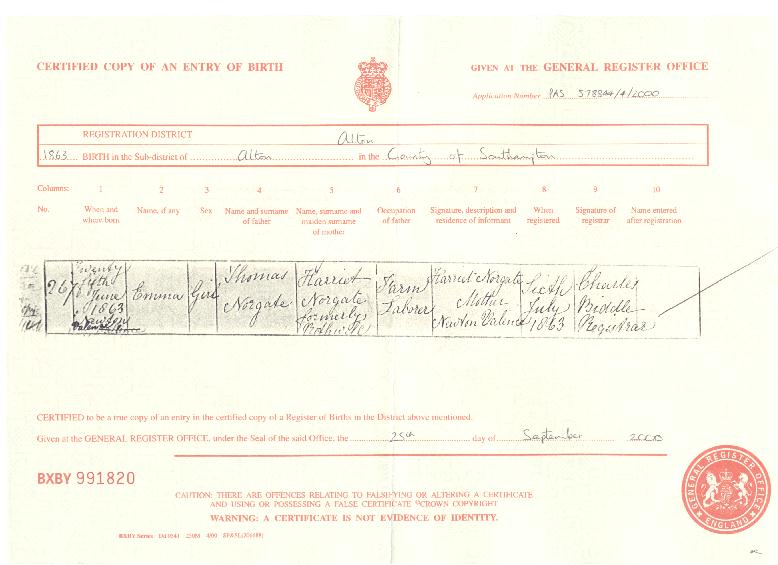 CERTIFIED COPY OF AN ENTRY OF BIRTH
GIVEN AT THE GENERAL REGISTER OFFICE
Application Number PAS 578844/4/2000
REGISTRATION DISTRICT Alton
1863 BIRTH in the Sub-district of Alton in the County of Southampton
Columns: 1 2 3 4 5 6 7 8 9 10
No. When and where born Name, if any Sex Name and surname of father Name, surname and maiden surname of mother Occupation of father Signature, description and residence of informant When registered Signature of registrar Name entered after registration
267 Twenty June 1863 Newton Valence
Emma
Girl
Thomas Norgate
Harriet Norgate formerly
Farm Laborer
Harriet Norgate Mother Newton Valence
Sixth July 1863
Charles Biddle Registrar
CERTIFIED to be a true copy of an entry in the certified copy of a Register of Births in the District above mentioned.
Given at the GENERAL REGISTER OFFICE, under the Seal of the said Office, the 25th day of September 2000
BXBY 991820
CAUTION: THERE ARE OFFENCES RELATING TO FALSIFYING OR ALTERING A CERTIFICATE
AND USING OR POSSESSING A FALSE CERTIFICATE ©CROWN COPYRIGHT
WARNING: A CERTIFICATE IS NOT EVIDENCE OF IDENTITY.
BXBY Series
GENERAL REGISTER OFFICE
ENGLAND